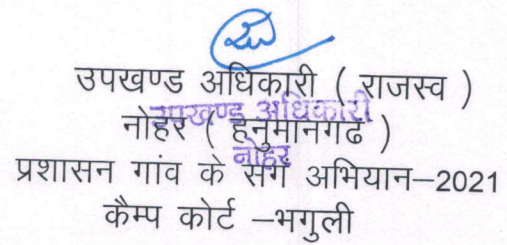 उपखण्ड अधिकारी ( राजस्व )
उपखण्ड अधिकारी
नोहर ( हनुमानगढ )
नोहर
प्रशासन गांव के संग अभियान–2021
कैम्प कोर्ट –भगुली